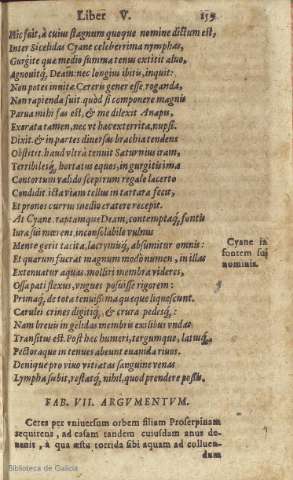 Liber V. 159
Hic fuit, à cuius stagnum quoque nomine dictum est,
Inter Sicelidas Cyane celeberrima nymphas,
Gurgite quæ medio summa tenus extitit aluo,
Agnouitq́; Deam: nec longius ibitis, inquit:
Non potes inuitæ Cereris gener esse, roganda,
Non rapienda fuit. quòd si componere magnis
Parua mihi fas est, & me dilexit Anapis,
Exorata tamen, nec vt hæc exterrita, nupsi.
Dixit. & in partes diuersas brachia tendens
Obstitit. haud vltrà tenuit Saturnius iram,
Terribilesq́; hortatus equos, in gurgitis ima
Contortum valido sceptrum regale lacerto
Condidit. icta viam tellus in tartara fecit,
Et pronos currus medio cratere recepit.
At Cyane. raptamque Deam, contemptaq́; fontis
Iura sui mœrens, inconsolabile vulnus
Mente gerit tacita, lacrymisq́; absumitur omnis:
Et quarum fuerat magnum modò numen, in illas
Extenuatur aquas. molliri membra videres,
Ossa pati flexus, vngues posuisse rigorem:
Primaq́; de tota tenuissima quæque liquescunt.
Cærulei crines digitiq́; & crura pedesq́;:
Nam breuis in gelidas membris exilibus vndas
Transitus est. Post hæc humeri, tergumque, latusq́;
Pectoraque in tenues abeunt euanida riuos.
Denique pro viuo vitiatas sanguine venas
Lympha subit, restatq́; nihil, quod prendere possis.
Cyane in
fontem sui
nominis.
FAB. VII. ARGVMENTVM.
Ceres per vniuersum orbem filiam Proserpinam
sequirens, ad casam tandem cuiusdam anus de-
uenit, à qua æstu torrida sibi aquam ad colluen-
dum
Biblioteca de Galicia